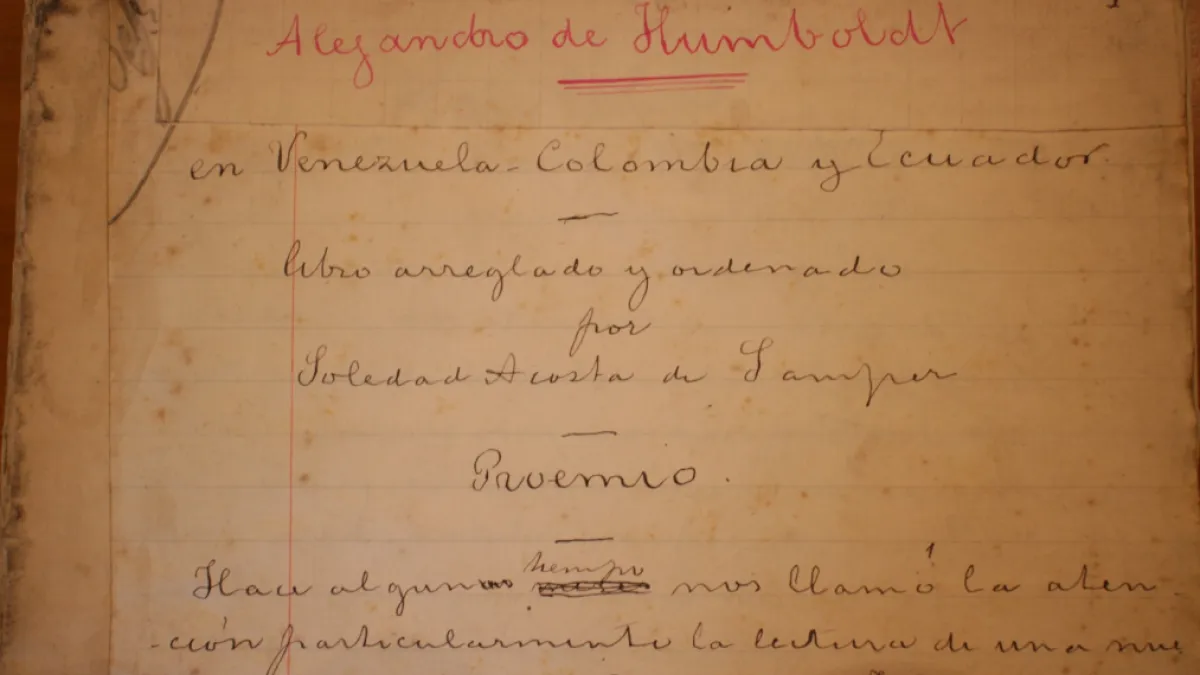 Alejandro de Humboldt
en Venezuela - Colombia y Ecuador.
Libro arreglado y ordenado
por
Soledad Acosta de Samper
Proemio.
Hace algun tiempo nos llamó la aten-
-ción particularmente la lectura de una nue